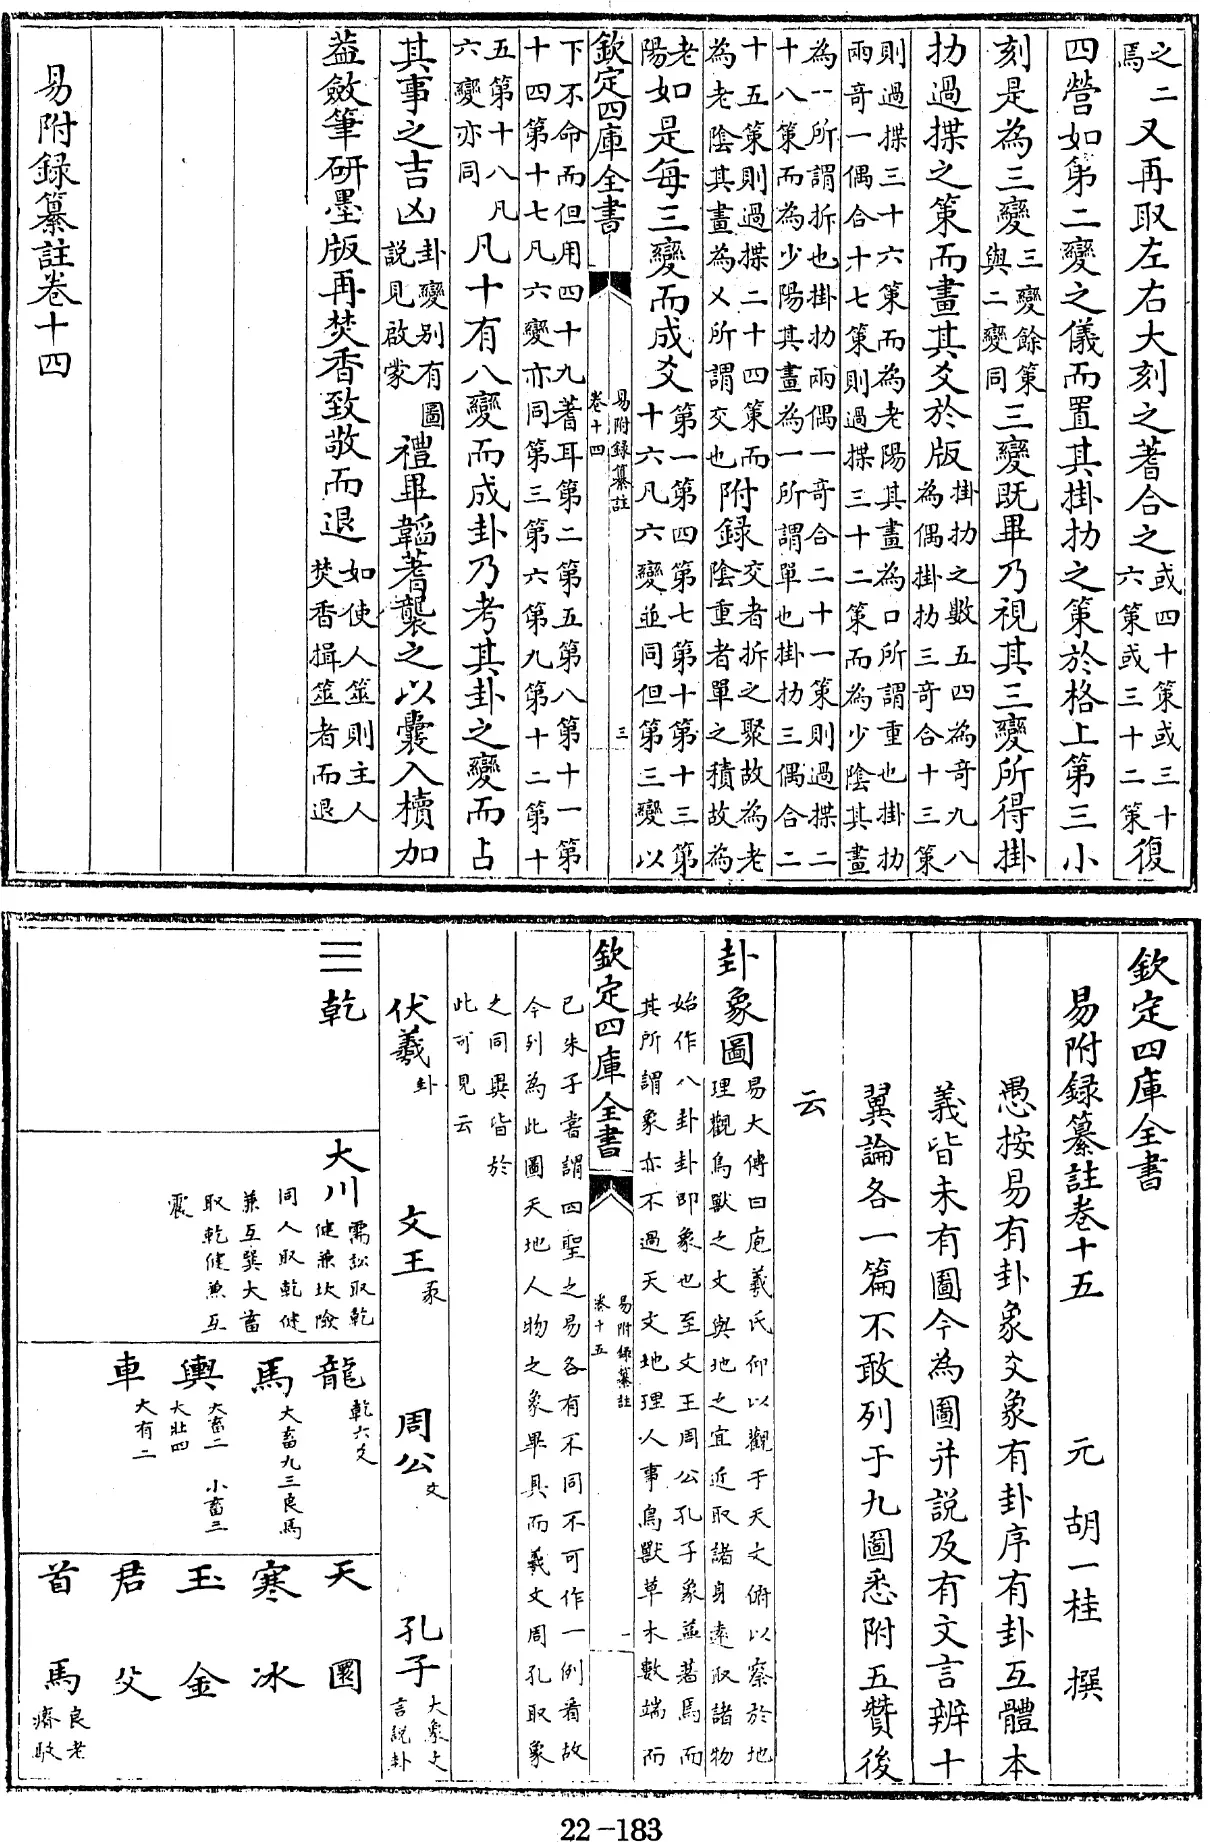 之二焉又再取左右大刻之蓍合之或四十策或三十六策或三十二策復
四營如第二變之儀而置其掛扐之策於格上第三小
刻是為三變三變餘策與二變同三變既畢乃視其三變所得掛
扐過揲之策而畫其爻於版掛扐之數五四為奇九八為偶掛扐三奇合十三策
則過揲三十六策而為老陽其畫為口所謂重也掛扐
兩奇一偶合十七策則過揲三十二策而為少陰其畫
為--所謂拆也掛扐兩偶一奇合二十一策則過揲二
十八策而為少陽其畫為一所謂單也掛扐三偶合二
十五策則過揲二十四策而為老陰其畫為乂所謂交也附録交者拆之聚故為老陰重者單之積故為
老陽如是每三變而成爻第一第四第七第十第十三第十六凡六變並同但第三變以
欽定四庫全書
易附録纂註
卷十四
三
下不命而但用四十九蓍耳第二第五第八第十一第
十四第十七凡六變亦同第三第六第九第十二第十
五第十八凡六變亦同凡十有八變而成卦乃考其卦之變而占
其事之吉凶卦變別有圖説見啟蒙禮畢韜蓍襲之以囊入櫝加
葢斂筆研墨版再焚香致敬而退如使人筮則主人焚香揖筮者而退
易附録纂註卷十四
欽定四庫全書
易附録纂註卷十五 元 胡一桂 撰
愚按易有卦象爻象有卦序有卦互體本
義皆未有圖今為圖并説及有文言辨十
翼論各一篇不敢列于九圖悉附五贊後
云
卦象圖易大傳曰庖羲氏仰以觀于天文俯以察於地理觀鳥獸之文與地之宜近取諸身遠取諸物
始作八卦卦即象也至文王周公孔子象益著焉而
其所謂象亦不過天文地理人事鳥獸草木數端而
欽定四庫全書
易附録纂註
卷十五
一
已朱子嘗謂四聖之易各有不同不可作一例看故
今列為此圖天地人物之象畢具而羲文周孔取象
之同異皆於
此可見云
伏羲卦 文王彖 周公爻 孔子大象文言説卦
☰乾
大川需訟取乾健兼坎險同人取乾健兼互巽大畜取乾健兼互震
龍乾六爻
馬大畜九三良馬
輿大畜二 小畜三大壯四
車大有二
天 圜
寒 冰
玉 金
君 父
首 馬良老瘠駁
22-183